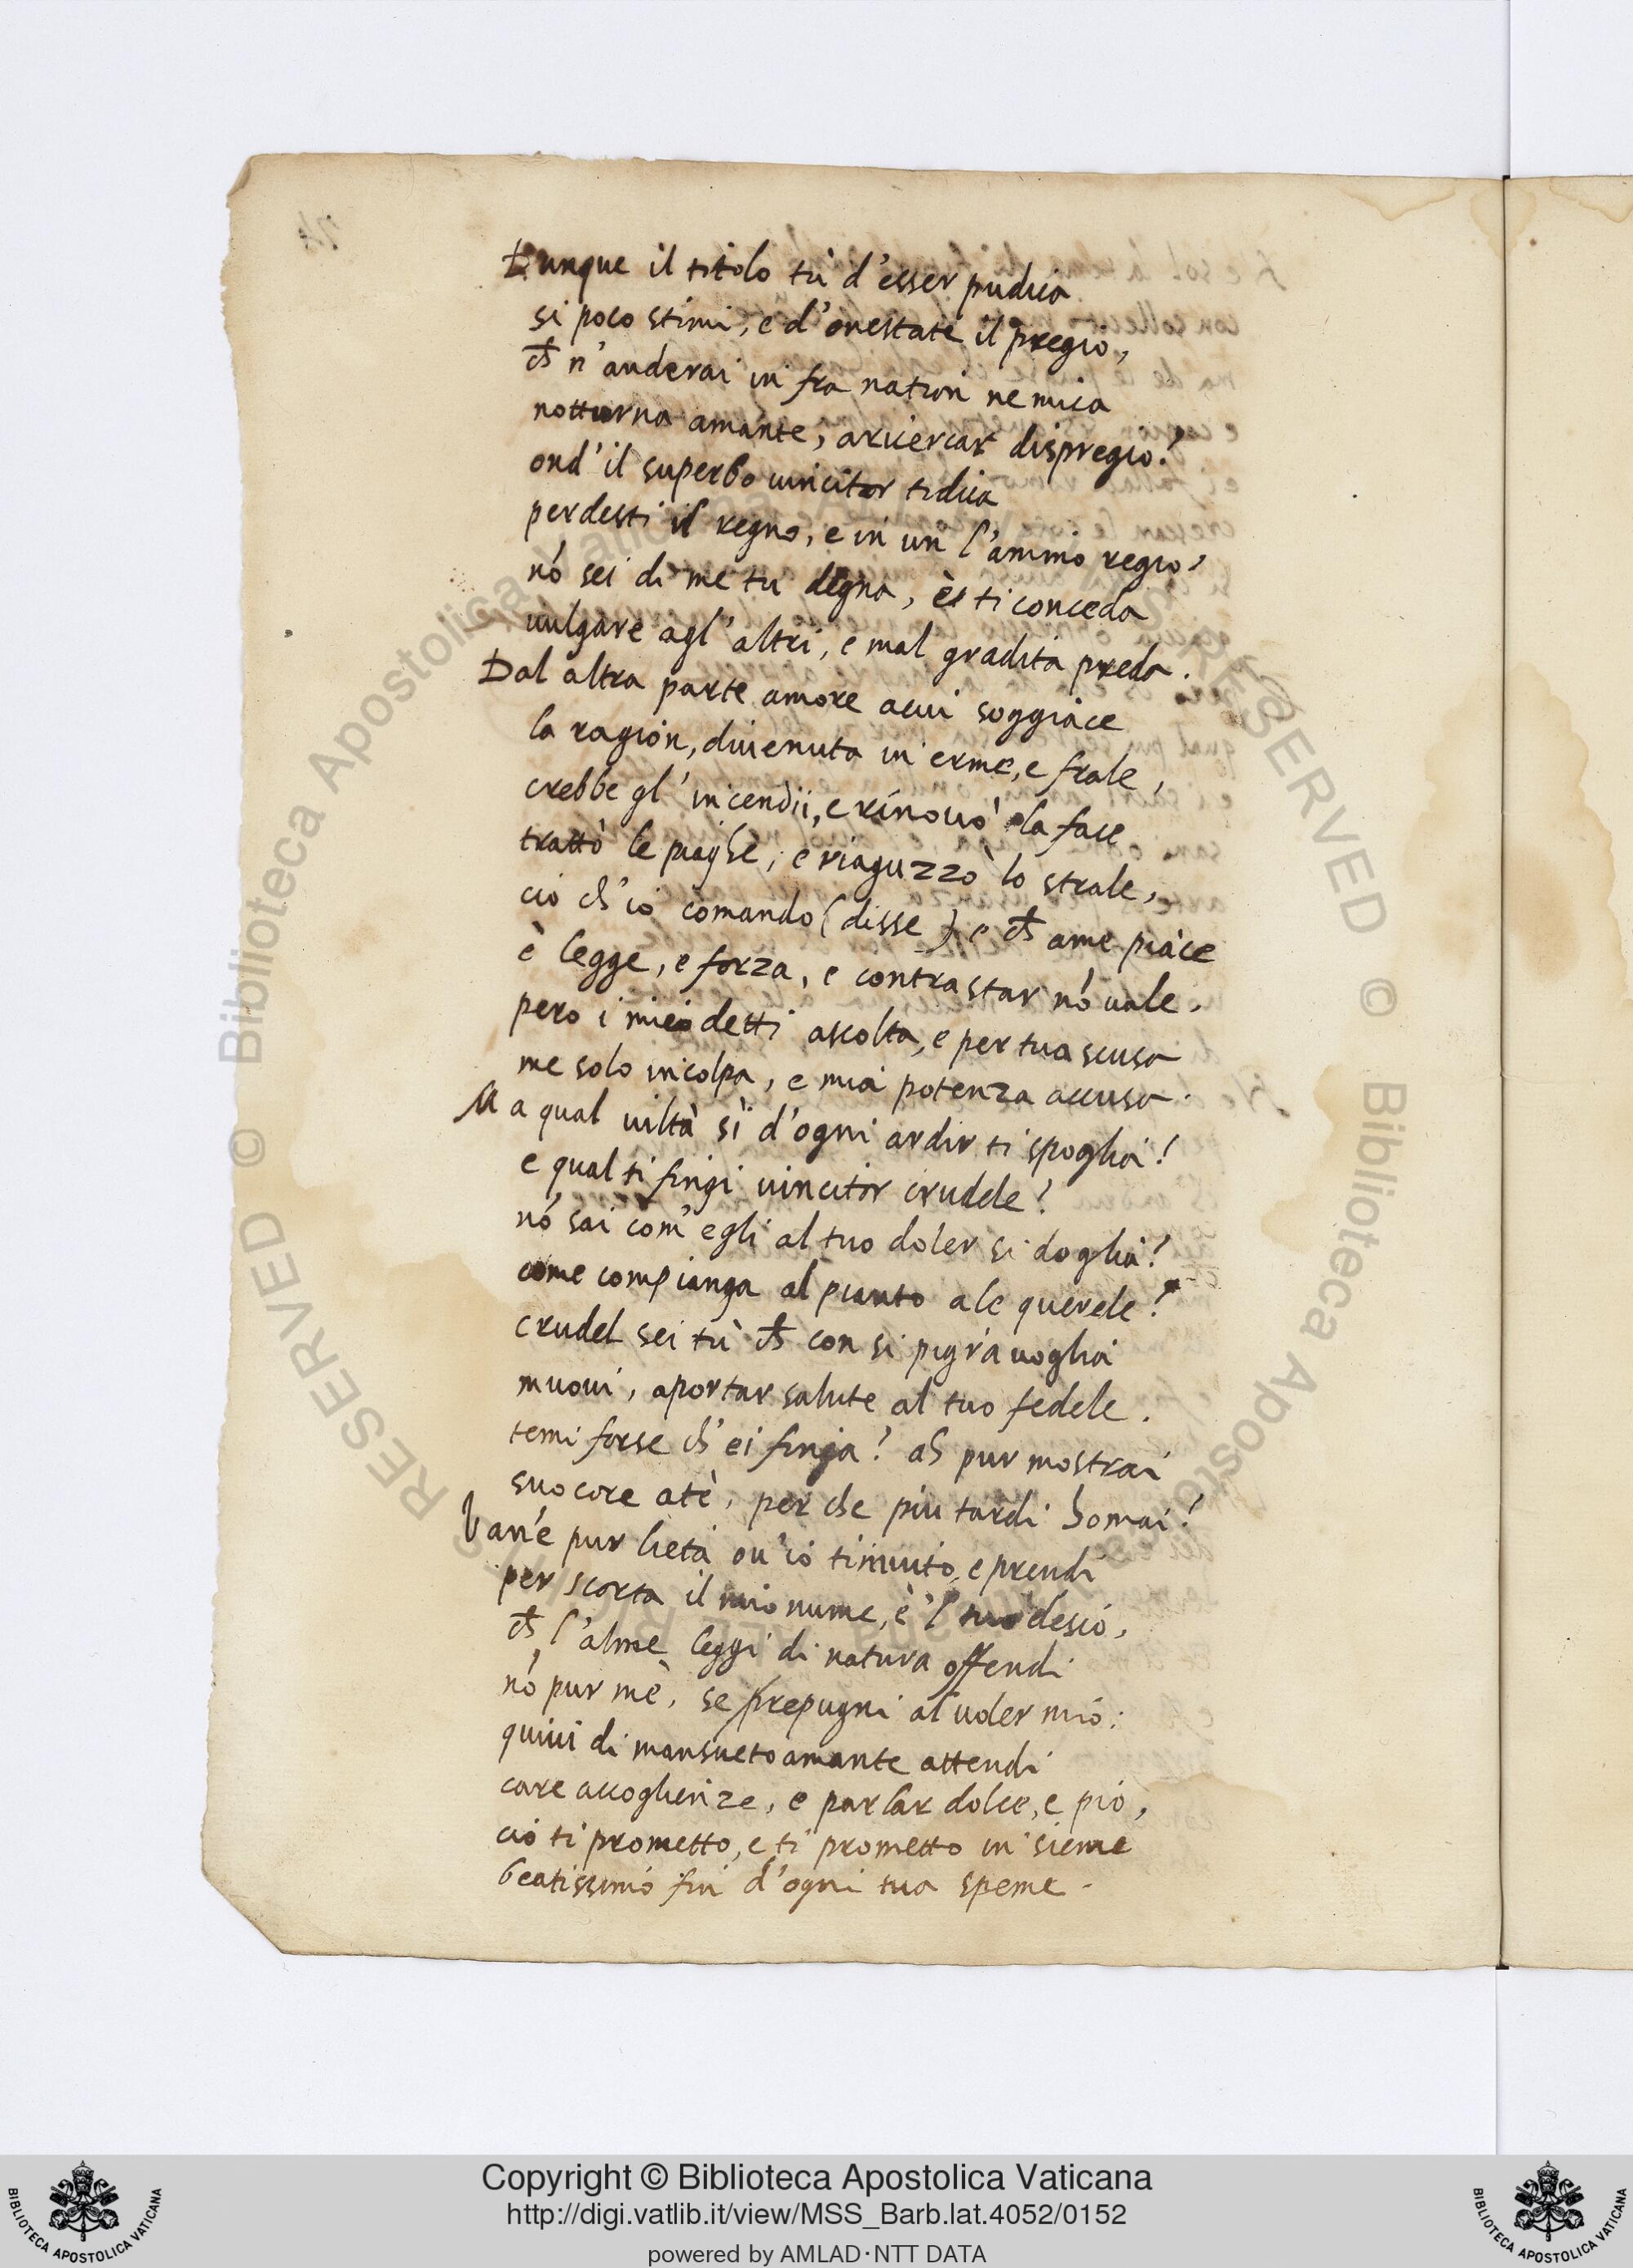 Dunque il titolo tù d'esser pudica
si poco stimi, e d'onestate il pregio,
ch n'anderai in fra nation nemica
notturna amante, aricercar dispregio?
ond'il superbo uincitor ti dica
perdesti il regno, e in un l'animo regio,
nó sei di me tu degna, è ti conceda
uulgare agl'altri, e mal gradita preda.
Dal altra parte amore acui soggiace
la ragion, diuenuta in erme, e frale,
crebbe gl'incendii, e rinouò la face
trattò le piaghe, e riaguzzò lo strale,
ciò ch'io comando (disse) e ch ame piace
è legge, e forza, e contrastar nó uale.
pero i miei detti ascolta, e per tua scusa
me solo incolpa, e mia potenza accusa.
Ma qual uiltà sì d'ogni ardir ti spoglia?
e qual ti fingi uincitor crudele?
nó sai com'egli al tuo doler si doglia?
come compianga al pianto ale querele?
crudel sei tù ch con si pigra uoglia
muoui, aportar salute al tuo fedele.
temi forse ch'ei finga? ah pur mostrai
suo core atè, perche piu tardi homai?
Vané pur lieta ou'io tinuito, e prendi
per scorta il mio nume, è 'l tuo desio,
ch l'alme leggi di natura offendi
nó pur mè, se prepugni al uoler mio:
quiui di mansueto amante attendi
care accoglienze, e parlar dolce, e pio,
ciò ti prometto, e ti prometto in sieme
beatissimo fin d'ogni tua speme.
RESERVED © Biblioteca Apostolica Vaticana
RESERVED © Biblioteca Apostolica
Copyright © Biblioteca Apostolica Vaticana
http://digi.vatlib.it/view/MSS_Barb.lat.4052/0152
powered by AMLAD·NTT DATA
BIBLIOTECA APOSTOLICA VATICANA
BIBLIOTECA APOSTOLICA VATICANA